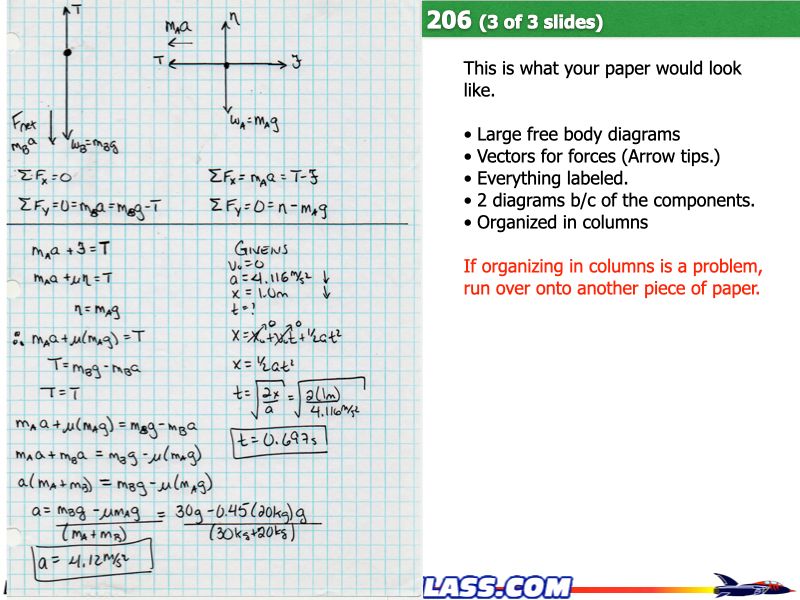 T
F_net
m_B a
w_B = m_B g
ΣF_x = 0
ΣF_y = 0 = m_B a = m_B g - T
m_A a
n
T
F
w_A = m_A g
ΣF_x = m_A a = T - F
ΣF_y = 0 = n - m_A g
m_A a + F = T
m_A a + μn = T
n = m_A g
∴ m_A a + μ(m_A g) = T
T = m_B g - m_B a
T = T
m_A a + μ(m_A g) = m_B g - m_B a
m_A a + m_B a = m_B g - μ(m_A g)
a(m_A + m_B) = m_B g - μ(m_A g)
a = m_B g - μm_A g / (m_A + m_B) = 30g - 0.45(20kg)g / (30kg+20kg)
a = 4.12 m/s²
GIVENS
v₀ = 0
a = 4.116 m/s² ↓
x = 1.0m ↓
t = ?
x = x₀ + v₀t + ½at²
0 0
x = ½at²
t = √(2x / a) = √(2(1m) / 4.116 m/s²)
t = 0.697s
206 (3 of 3 slides)
This is what your paper would look
like.
• Large free body diagrams
• Vectors for forces (Arrow tips.)
• Everything labeled.
• 2 diagrams b/c of the components.
• Organized in columns
If organizing in columns is a problem,
run over onto another piece of paper.
LASS.COM